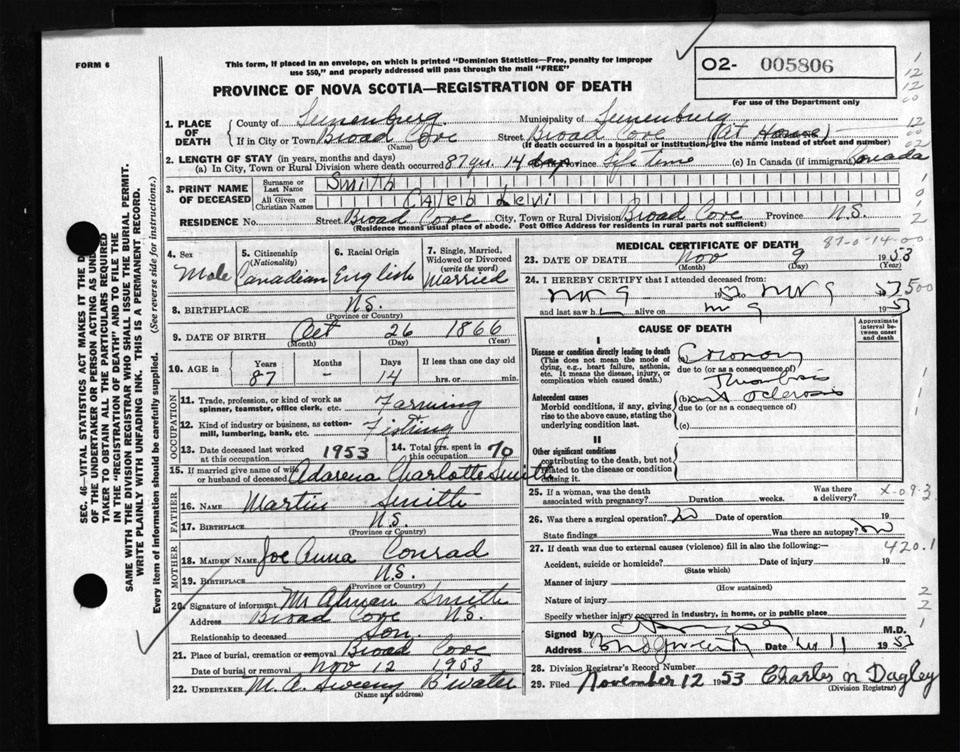 FORM 6
This form, if placed in an envelope, on which is printed "Dominion Statistics—Free, penalty for improper
use $50," and properly addressed will pass through the mail "FREE"
O2- 005806
PROVINCE OF NOVA SCOTIA—REGISTRATION OF DEATH
For use of the Department only
1. PLACE OF DEATH
County of Lunenburg Municipality of Lunenburg
If in City or Town Broad Cove Street Broad Cove (At Home)
(Name) (If death occurred in a hospital or institution, give the name instead of street and number)
2. LENGTH OF STAY (in years, months and days)
(a) In City, Town or Rural Division where death occurred 87 yrs. 14 days Province Life time (c) In Canada (if immigrant) Canada
3. PRINT NAME OF DECEASED
Surname or Last Name Smith
All Given or Christian Names Caleb Levi
RESIDENCE No. Street Broad Cove City, Town or Rural Division Broad Cove Province N.S.
(Residence means usual place of abode. Post Office Address for residents in rural parts not sufficient)
4. Sex Male
5. Citizenship (Nationality) Canadian
6. Racial Origin English
7. Single, Married, Widowed or Divorced (write the word) Married
8. BIRTHPLACE N.S.
(Province or Country)
9. DATE OF BIRTH Oct 26 1866
(Month) (Day) (Year)
10. AGE in Years 87 Months - Days 14 If less than one day old hrs. or min.
OCCUPATION
11. Trade, profession, or kind of work as spinner, teamster, office clerk, etc. Farming
12. Kind of industry or business, as cotton-mill, lumbering, bank, etc. Fishing
13. Date deceased last worked at this occupation 1953
14. Total yrs. spent in this occupation 70
15. If married give name of wife or husband of deceased Adarena Charlotte Smith
FATHER
16. NAME Martin Smith
17. BIRTHPLACE N.S.
(Province or Country)
MOTHER
18. MAIDEN NAME Joe Anna Conrad
19. BIRTHPLACE N.S.
(Province or Country)
20. Signature of informant Mr Alman Smith
Address Broad Cove N.S.
Relationship to deceased Son.
21. Place of burial, cremation or removal Broad Cove
Date of burial or removal Nov 12 1953
22. UNDERTAKER M. A. Sweeny B'water
(Name and address)
MEDICAL CERTIFICATE OF DEATH
87-0-14-00
23. DATE OF DEATH Nov 9 1953
(Month) (Day) (Year)
24. I HEREBY CERTIFY that I attended deceased from:
Nov 9 1953 to Nov 9 1953
and last saw h alive on Nov 9 1953
CAUSE OF DEATH
Approximate interval between onset and death
I
Disease or condition directly leading to death
(This does not mean the mode of dying, e.g., heart failure, asthenia, etc. It means the disease, injury, or complication which caused death.)
(a) Coronary
due to (or as a consequence of)
Thrombosis
Antecedent causes
Morbid conditions, if any, giving rise to the above cause, stating the underlying condition last.
(b) Art Sclerosis
due to (or as a consequence of)
(c)
II
Other significant conditions
contributing to the death, but not related to the disease or condition causing it.
25. If a woman, was the death associated with pregnancy? Duration weeks. Was there a delivery?
X-09.3
26. Was there a surgical operation? No Date of operation 19
State findings Was there an autopsy? No
27. If death was due to external causes (violence) fill in also the following:—
420.1
Accident, suicide or homicide? Date of injury 19
(State which)
Manner of injury
(How sustained)
Nature of injury
Specify whether injury occurred in industry, in home, or in public place
Signed by M.D.
Address Date Nov 11 1953
28. Division Registrar's Record Number
29. Filed November 12 1953 Charles M Dagley
(Division Registrar)
SEC. 46—VITAL STATISTICS ACT MAKES IT THE D
OF THE UNDERTAKER OR PERSON ACTING AS UND
TAKER TO OBTAIN ALL THE PARTICULARS REQUIRED
IN THE "REGISTRATION OF DEATH" AND TO FILE THE
SAME WITH THE DIVISION REGISTRAR WHO SHALL ISSUE THE BURIAL PERMIT.
WRITE PLAINLY WITH UNFADING INK. THIS IS A PERMANENT RECORD.
Every item of information should be carefully supplied. (See reverse side for instructions.)